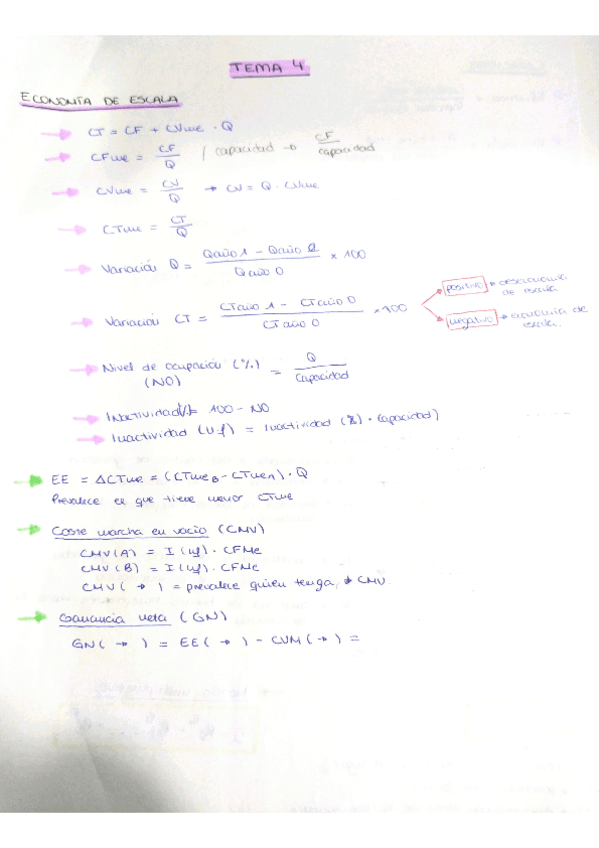 TEMA 4
ECONOMÍA DE ESCALA
CT = CF + CVme · Q
CFme = CF / Q / capacidad → CF / capacidad
CVme = CV / Q → CV = Q · CVme
CTme = CT / Q
Variación Q = Qaño 1 - Qaño 0 / Qaño 0 × 100
Variación CT = CTaño 1 - CTaño 0 / CTaño 0 × 100
positivo → deseconomía de escala
negativo → economía de escala.
Nivel de ocupación (%) = Q / Capacidad
(NO)
Inactividad% = 100 - NO
Inactividad (uf) = Inactividad (%) · Capacidad)
EE = ΔCTme = (CTmeB - CTmeA) · Q
Prevalece el que tiene menor CTme
Coste marcha en vacío (CMV)
CMV(A) = I (uf) · CFMe
CMV (B) = I (uf) · CFMe
CMV ( → ) = prevalece quien tenga ↓ CMV
Ganancia neta (GN)
GN ( → ) = EE ( → ) - CVM ( → ) =